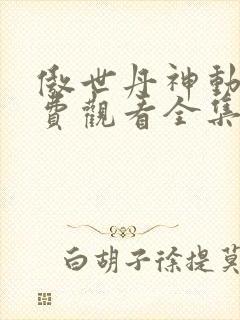 傲世丹神動
費觀看全集
白胡子徐提莫